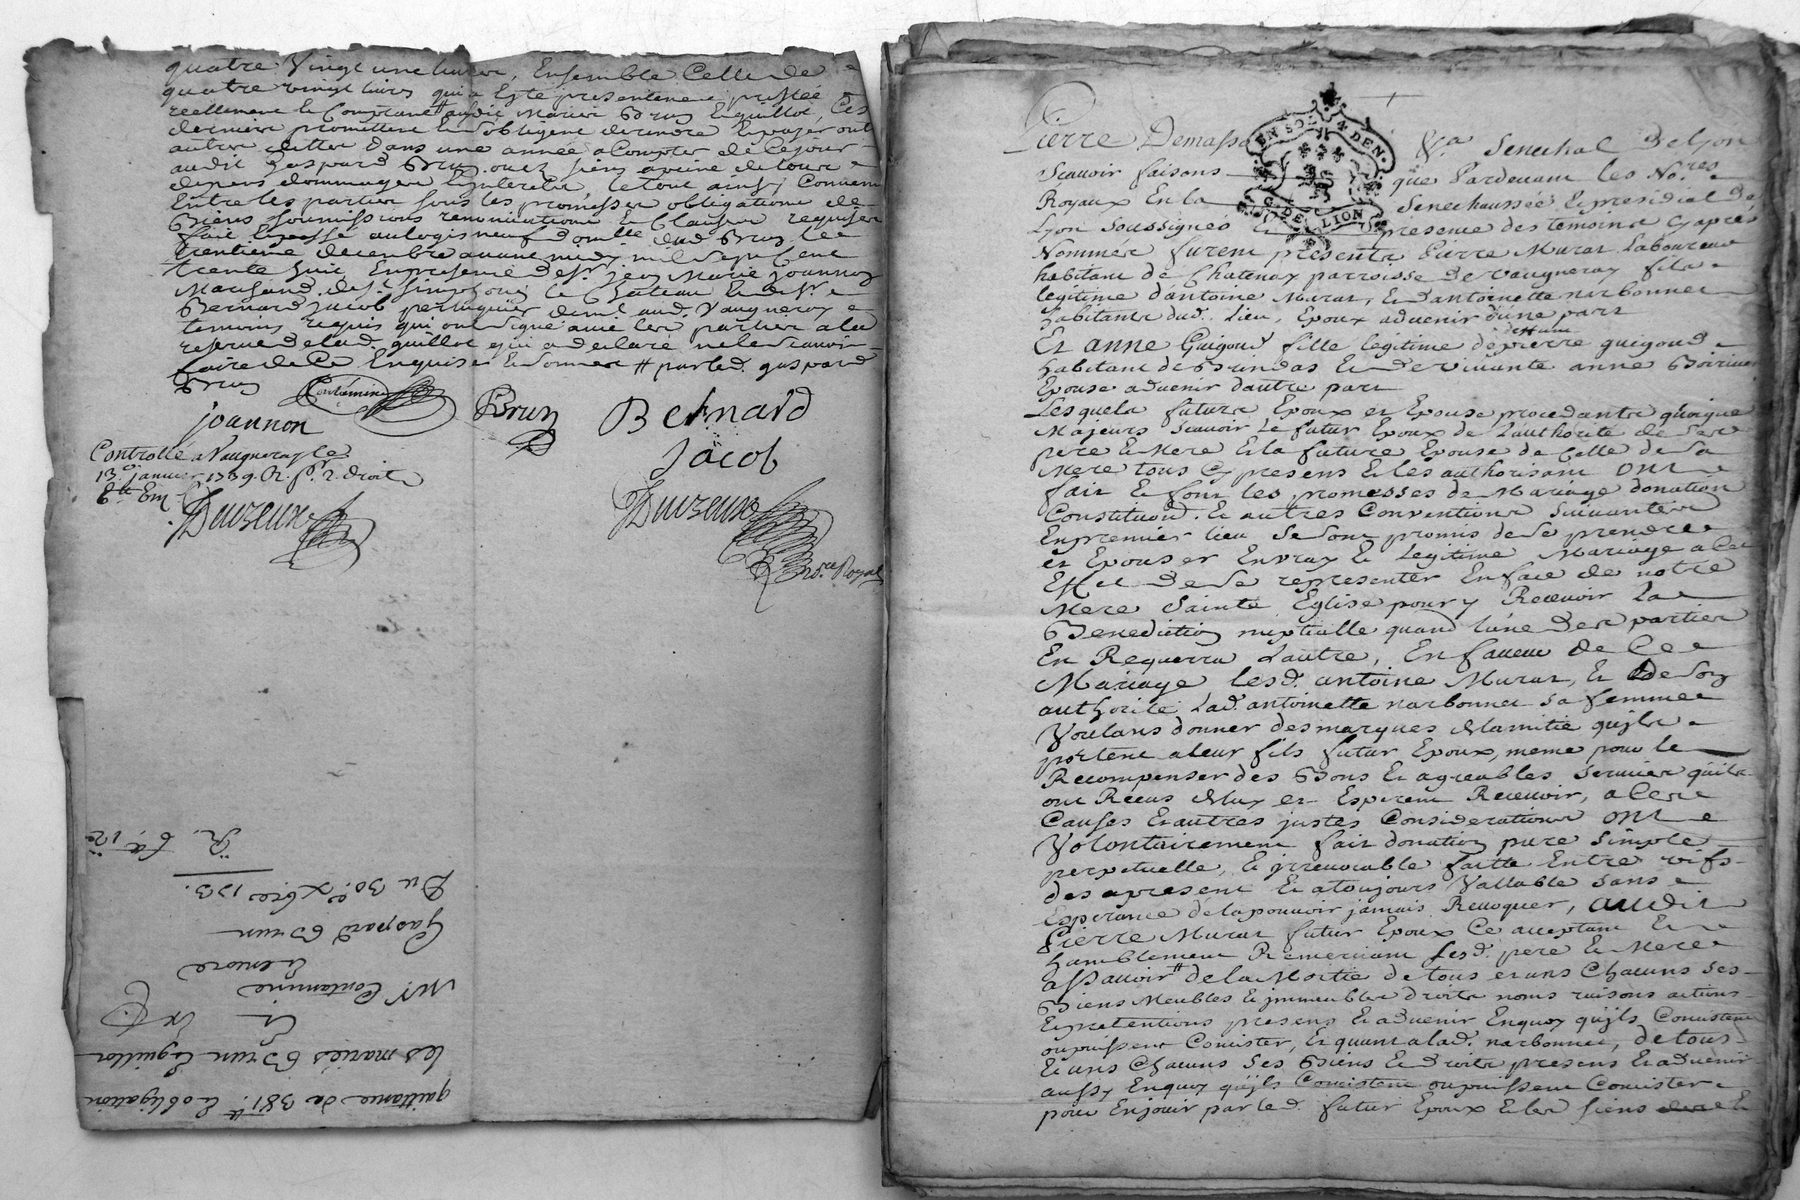 quatre Vingt une livre, Ensemble Celle de
quatre vingt livres qui a Esté presentement prestée
reellement & Comptant audit Mariés Brun & guillot, Ces
derniers promettent & s'obligent de rendre & payer
autres dettes dans une année a Compter de Ce jour
audit Gaspard Brun ou es siens a peine de tous
depens dommages & interets, le tout ainsy Convenu
Entre les parties sous les promesses obligations de
Biens soumissions renonciations & Clauses requises
fait & passé au logis neuf dud Brun le
trentieme decembre avant midy mil sept Cent
trente huit En presence de sr. jean Marie joannon
Marchand de st. simphorien le Chateau & de sr.
Bernard jacob perruquier demt. aud. Vaugneray
temoins requis qui ont signé avec les parties a la
reserve de lad. guillot qui a declaré ne le scavoir
faire de Ce Enquise & sommée # par led. gaspard
Brun
Contamine
joannon Brun Bernard
Jacob
Controllé a Vaugneray le
13e. janvier 1739. R. p. 2. droit
Duizeux
Duizeux
No.re Royal
quittance de 381 lt & obligation
les mariés Brun & guillot
Et
Mr. Contamine
& encore
Gaspard Brun
Du 30e. Xbre 173.
EN SOL 4 DEN.
G. DE LION
Pierre Demassa Senechal De Lyon
Scavoir faisons que Pardevant les No.res
Royaux En la Senechaussée & presidial de
Lyon Soussignés & presence des temoins Cy apres
Nommés furent presents Pierre Murat Laboureur
habitant de Chatenay parroisse de Vaugneray fils
legitime d'antoine Murat, & d'antoinette narbonnet
habitants dud. Lieu, Epoux advenir d'une part
deffunt
Et anne Guigoud fille legitime de pierre guigoud
habitant de Brindas & de vivante anne Boiriven
Epouse advenir d'autre part
Lesquels futurs Epoux et Epouse procedants quoique
Majeurs Scavoir Le futur Epoux de L'authorité de Ses
pere & Mere & la future Epouse de Celle de Sa
Mere tous Cy presens & les authorisant ont
fait & font les promesses de Mariage donation
Constitution. & autres Conventions suivantes
En premier lieu Se sont promis de Se prendre
et Epouser En vray & Legitime Mariage a Cet
Effet de Se representer En face de notre
Mere Sainte Eglise pour y Recevoir La
Benediction nuptialle quand l'une des parties
En Requerra L'autre, En faveur de Ce
Mariage lesd. antoine Murat, & de Son
authorité Lad. antoinette narbonnet sa femme
Voulans donner des marques d'Lamitié qu'ils
portent a leur fils futur Epoux, meme pour le
Recompenser des Bons & agreables services qu'ils
ont Receus d'Luy et Esperent Recevoir, a Ces
Causes & autres justes Considerations ont
Volontairement fait donation pure simple
perpetuelle, & jrrevocable faitte Entre vifs
des apresent & a toujours Vallable sans
Esperance de la pouvoir jamais Revoquer, audit
Pierre Murat futur Epoux Ce acceptant &
humblement Remerciant Lesd. pere & Mere
assavoir # de la Moitié de tous et uns Chacuns Ses
Biens Meubles & jmmeubles droits noms raisons actions
& pretentions presens & advenir En quoy qu'ils Consistent
ou puissent Consister, Et quant a lad. narbonnet, de tous
& uns Chacuns Ses Biens & droits presens & advenir
aussy En quoy qu'ils Consistent ou puissent Consister
pour En jouir par led. futur Epoux & les siens